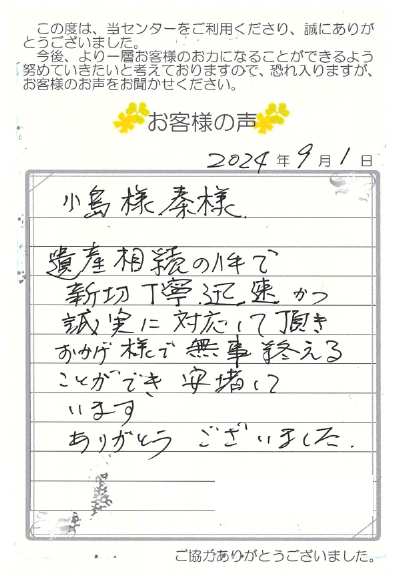 この度は、当センターをご利用くださり、誠にありが
とうございました。
今後、より一層お客様のお力になることができるよう
努めていきたいと考えておりますので、恐れ入りますが、
お客様のお声をお聞かせください。
お客様の声
2024年9月1日
小島様 秦様
遺産相続の件で
新切丁寧迅速かつ
誠実に対応して頂き
おかげ様で無事終える
ことができ安堵して
います
ありがとうございました.
ご協力ありがとうございました。